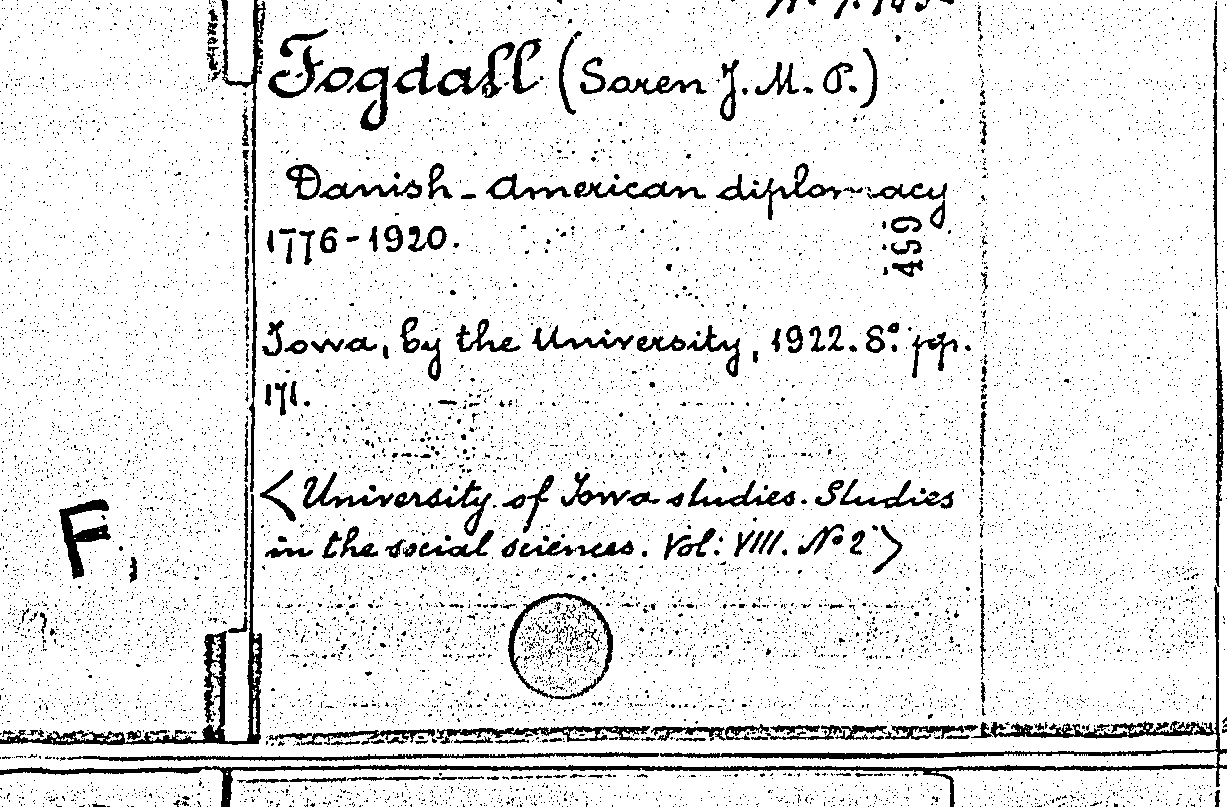 Fogdall (Soren J. M. P.)
Danish-American diplomacy
1776-1920.
459
Iowa, by the University, 1922. 8º. pp.
171.
<University of Iowa studies. Studies
in the social sciences. Vol: VIII. Nº 2>
F,